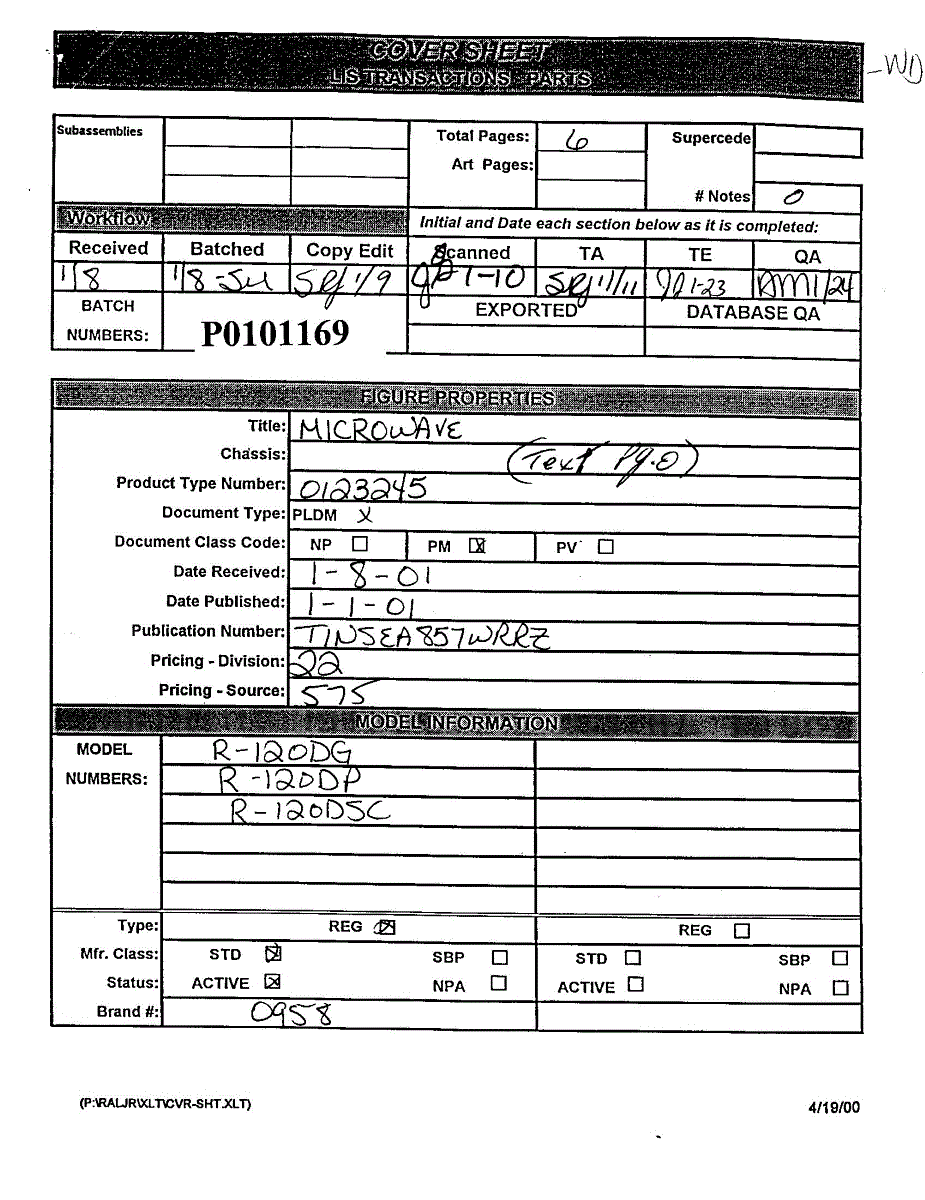 COVER SHEET
LIS TRANSACTIONS - PARTS
-WD
Subassemblies Total Pages: 6 Supercede
Art Pages:
# Notes 0
Workflow Initial and Date each section below as it is completed:
Received Batched Copy Edit Scanned TA TE QA
1/8 1/8 1/9 1-10 1/11 1-23 1/24
BATCH NUMBERS: P0101169 EXPORTED DATABASE QA
FIGURE PROPERTIES
Title: MICROWAVE
Chassis: (Text Pg.0)
Product Type Number: 0123245
Document Type: PLDM X
Document Class Code: NP PM X PV
Date Received: 1-8-01
Date Published: 1-1-01
Publication Number: TINSEA857WRRZ
Pricing - Division: 22
Pricing - Source: 575
MODEL INFORMATION
MODEL NUMBERS: R-120DG
R-120DP
R-120DSC
Type: REG X REG
Mfr. Class: STD X SBP STD SBP
Status: ACTIVE X NPA ACTIVE NPA
Brand #: 0958
(P:\RALJR\XLT\CVR-SHT.XLT) 4/19/00